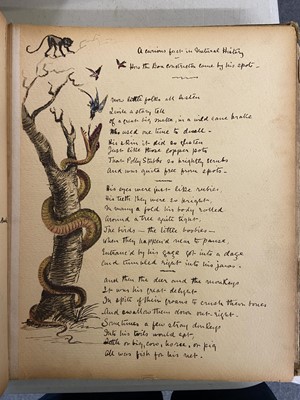 A curious fact in Natural History
How the Boa constrictor came by his spots.
Now little folks all listen
Quite a story tell
of a great big snake, in a wild cane brake
Who used one time to dwell.
His skin it did so glisten
Just like those copper pots
That Polly Stubbs so brightly scrubs
And was quite free from spots.
His eyes were just like rubies
His teeth they were so bright.
In many a fold his body rolled
Around a tree quite tight.
The birds - the little boobies -
When they happened near to pause.
Entranced by his gaze got into a daze
And tumbled right into his jaws.
And then the deer and the monkeys
It was his great delight
In spite of their groans to crush their bones
And swallow them down outright.
Sometimes a few stray donkeys
Into his toils would get,
or big, cow, horse, or pig
All was fish for his net.